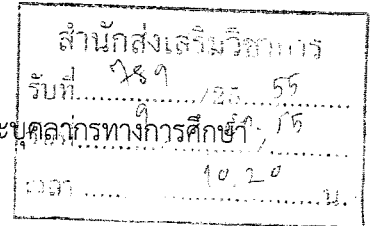 สำนักส่งเสริมวิชาการ
รับที่.......789......../25...55
ะบุคลากรทางการศึกษา
เวลา.......10.20.......น.